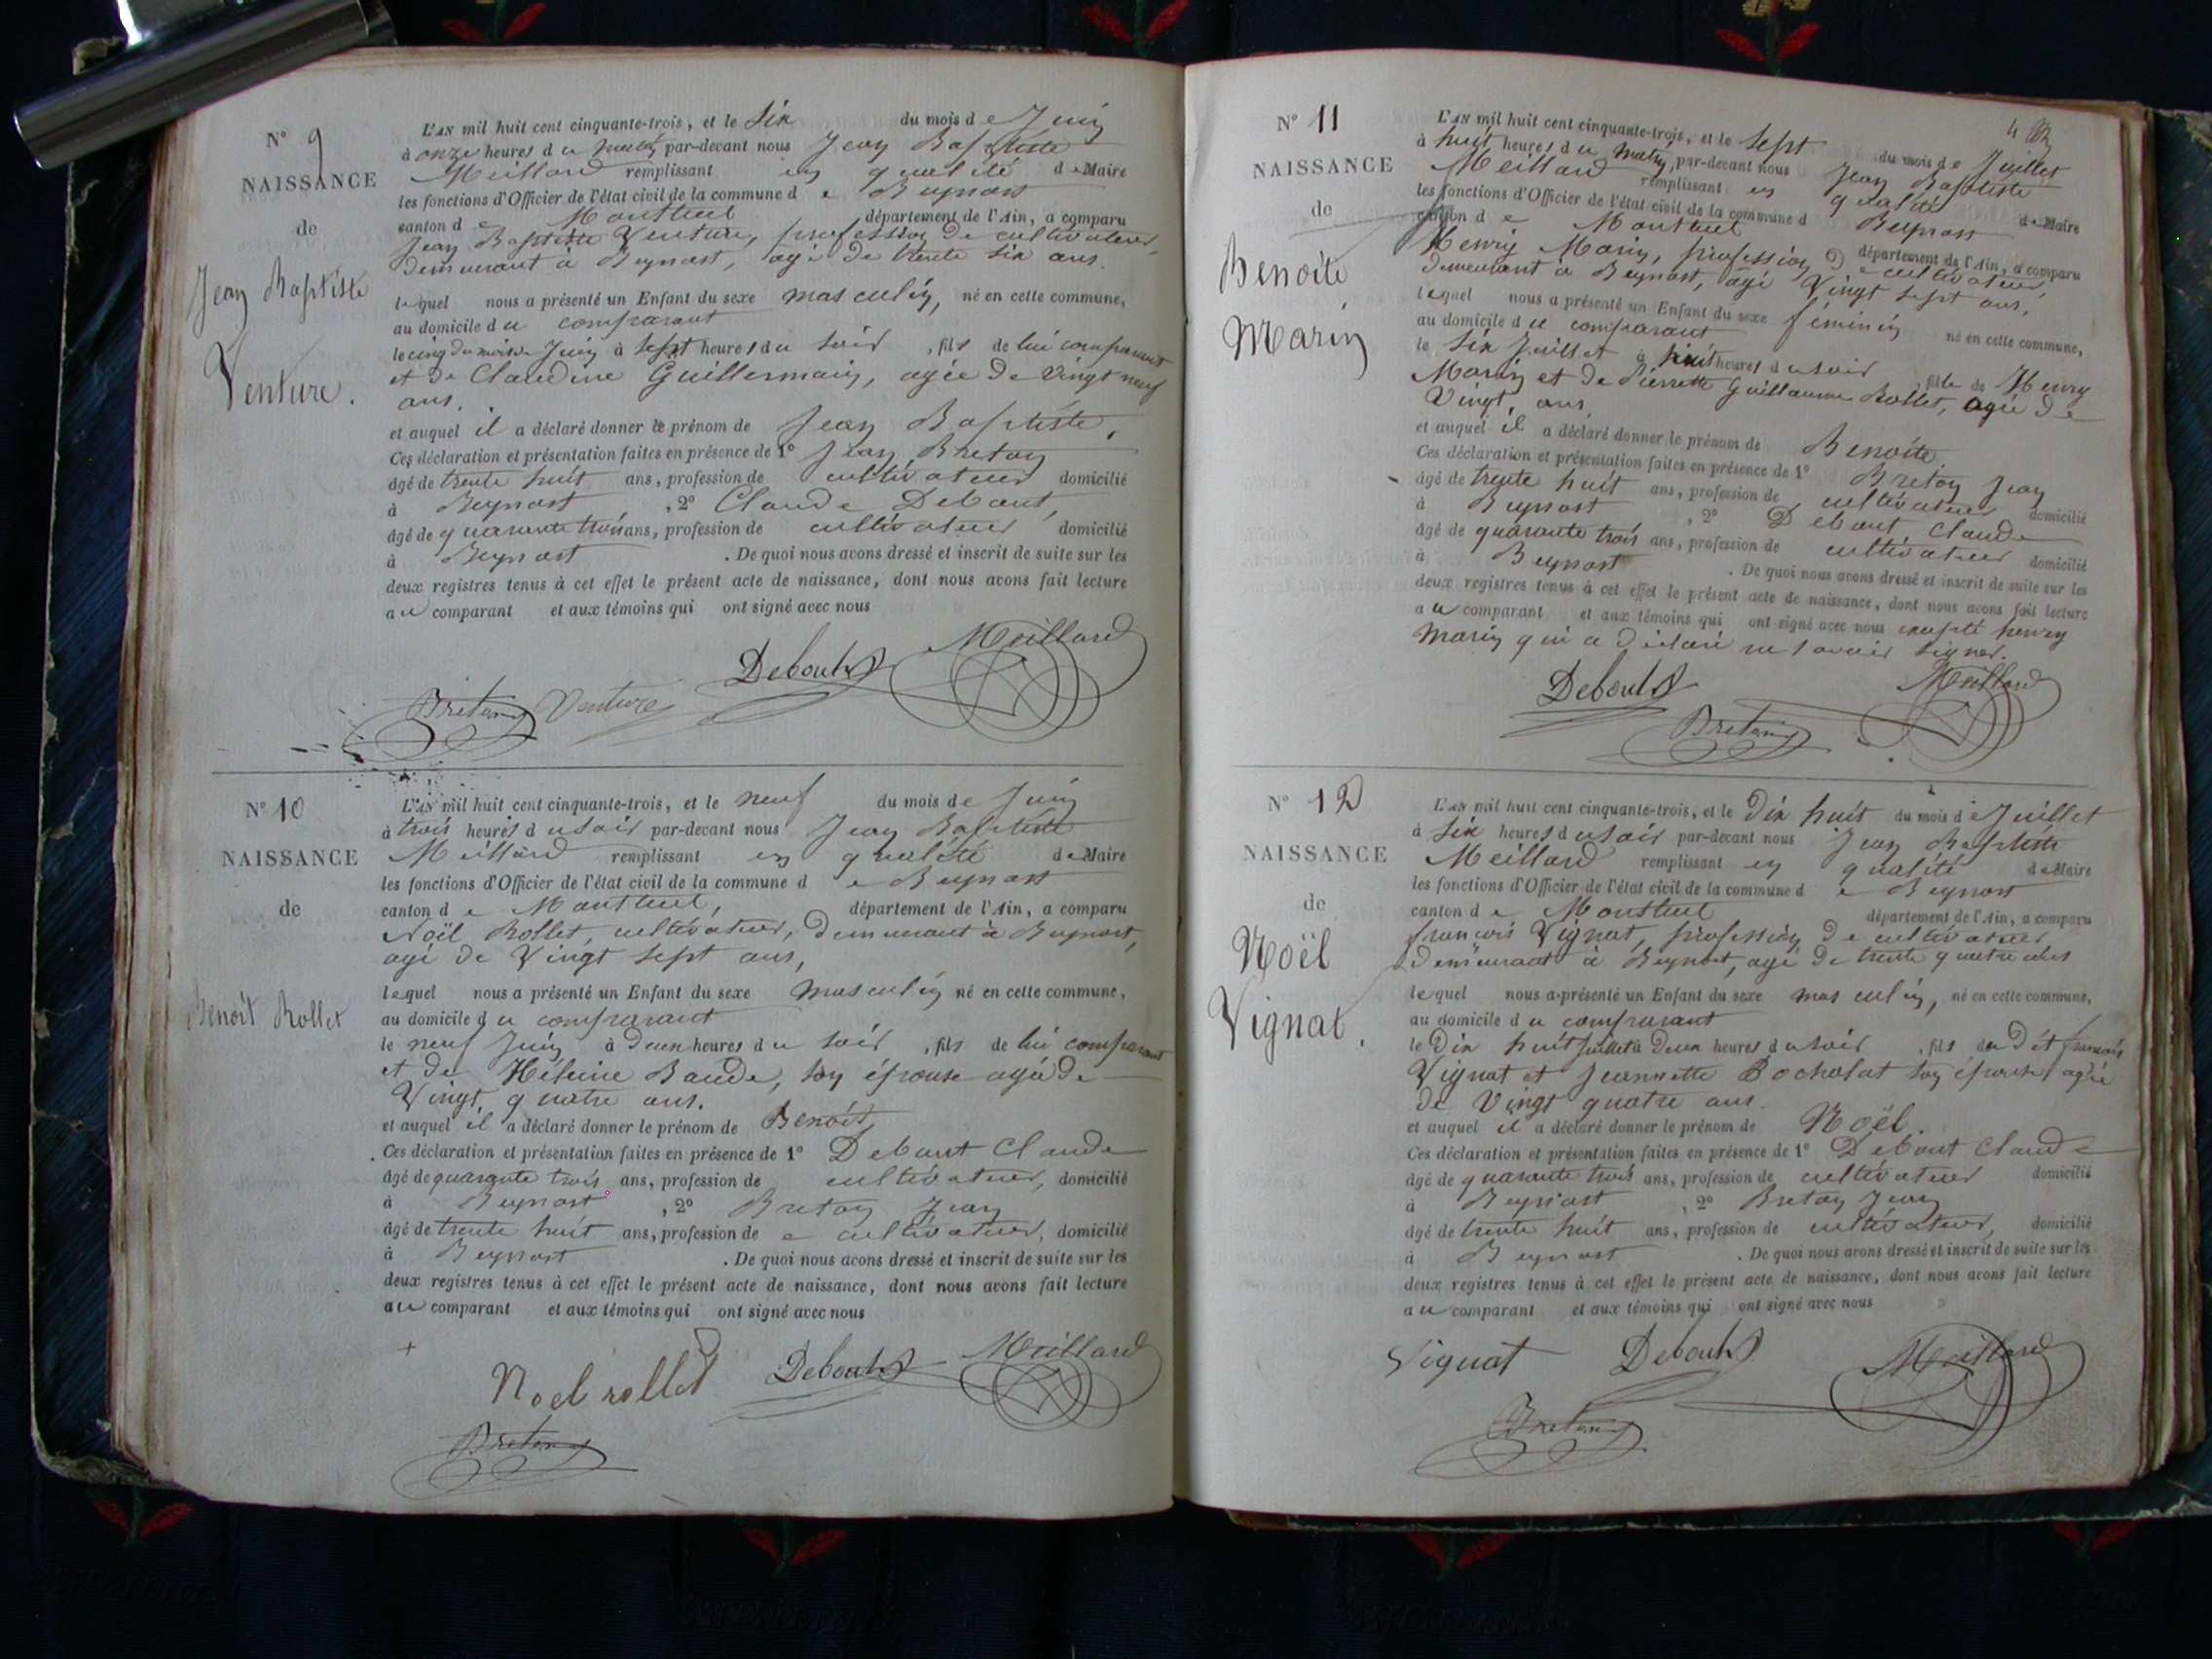 N° 9
NAISSANCE
de
Jean Baptiste
Venture.
L'AN mil huit cent cinquante-trois, et le Six du mois de Juin
à onze heures du matin par-devant nous Jean Baptiste
Meillard remplissant en qualité de Maire
les fonctions d'Officier de l'état civil de la commune de Beynost
canton de Montluel département de l'Ain, a comparu
Jean Baptiste Venture, profession de cultivateur,
demeurant à Beynost, agé de trente six ans.
lequel nous a présenté un Enfant du sexe masculin, né en cette commune,
au domicile du comparant
le cinq du mois de Juin à sept heures du soir, fils de lui comparant
et de Claudine Guillermain, agée de vingt neuf
ans.
et auquel il a déclaré donner le prénom de Jean Baptiste.
Ces déclaration et présentation faites en présence de 1° Jean Breton
âgé de trente huit ans, profession de cultivateur domicilié
à Beynost, 2° Claude Debout,
âgé de quarante trois ans, profession de cultivateur domicilié
à Beynost. De quoi nous avons dressé et inscrit de suite sur les
deux registres tenus à cet effet le présent acte de naissance, dont nous avons fait lecture
au comparant et aux témoins qui ont signé avec nous
Meillard
Debout
Breton Venture
N° 10
NAISSANCE
de
Benoît Rollet
L'AN mil huit cent cinquante-trois, et le neuf du mois de Juin
à trois heures du soir par-devant nous Jean Baptiste
Meillard remplissant en qualité de Maire
les fonctions d'Officier de l'état civil de la commune de Beynost
canton de Montluel, département de l'Ain, a comparu
Noël Rollet, cultivateur, demeurant à Beynost,
agé de Vingt sept ans,
lequel nous a présenté un Enfant du sexe masculin né en cette commune,
au domicile du comparant
le neuf Juin à deux heures du soir, fils de lui comparant
et de Héleine Baude, son épouse agée de
Vingt quatre ans.
et auquel il a déclaré donner le prénom de Benoît
Ces déclaration et présentation faites en présence de 1° Debout Claude
âgé de quarante trois ans, profession de cultivateur, domicilié
à Beynost, 2° Breton Jean
âgé de trente huit ans, profession de cultivateur, domicilié
à Beynost. De quoi nous avons dressé et inscrit de suite sur les
deux registres tenus à cet effet le présent acte de naissance, dont nous avons fait lecture
au comparant et aux témoins qui ont signé avec nous
Noel rollet Debout Meillard
Breton
4
N° 11
NAISSANCE
de
Benoite
Marin
L'AN mil huit cent cinquante-trois, et le Sept du mois de Juillet
à huit heures du matin, par-devant nous Jean Baptiste
Meillard remplissant en qualité de Maire
les fonctions d'Officier de l'état civil de la commune d Beynost
canton de Montluel département de l'Ain, a comparu
Henry Marin, profession de cultivateur,
demeurant à Beynost, agé Vingt sept ans,
lequel nous a présenté un Enfant du sexe féminin né en cette commune,
au domicile du comparant
le Six Juillet à huit heures du soir, fille de Henry
Marin et de Pierrette Guillaume Rollet, agée de
Vingt, ans
et auquel il a déclaré donner le prénom de Benoite
Ces déclaration et présentation faites en présence de 1° Breton Jean
âgé de trente huit ans, profession de cultivateur domicilié
à Beynost, 2° Debout Claude
âgé de quarante trois ans, profession de cultivateur domicilié
à Beynost. De quoi nous avons dressé et inscrit de suite sur les
deux registres tenus à cet effet le présent acte de naissance, dont nous avons fait lecture
au comparant et aux témoins qui ont signé avec nous excepté henry
Marin qui a déclaré ne savoir signer.
Debout Meillard
Breton
N° 12
NAISSANCE
de
Noël
Vignat.
L'AN mil huit cent cinquante-trois, et le Dix huit du mois de Juillet
à Six heures du soir par-devant nous Jean Baptiste
Meillard remplissant en qualité de Maire
les fonctions d'Officier de l'état civil de la commune de Beynost
canton de Montluel département de l'Ain, a comparu
françois Vignat, profession de cultivateur
demeurant à Beynost, agé de trente quatre ans
lequel nous a présenté un Enfant du sexe masculin, né en cette commune,
au domicile du comparant
le Dix huit Juillet à Deux heures du soir, fils du dit françois
Vignat et Jeannette Bocholat son épouse agée
de Vingt quatre ans.
et auquel il a déclaré donner le prénom de Noël.
Ces déclaration et présentation faites en présence de 1° Debout Claude
âgé de quarante trois ans, profession de cultivateur domicilié
à Beynost, 2° Breton Jean
âgé de trente huit ans, profession de cultivateur, domicilié
à Beynost. De quoi nous avons dressé et inscrit de suite sur les
deux registres tenus à cet effet le présent acte de naissance, dont nous avons fait lecture
au comparant et aux témoins qui ont signé avec nous
Vignat Debout Meillard
Breton